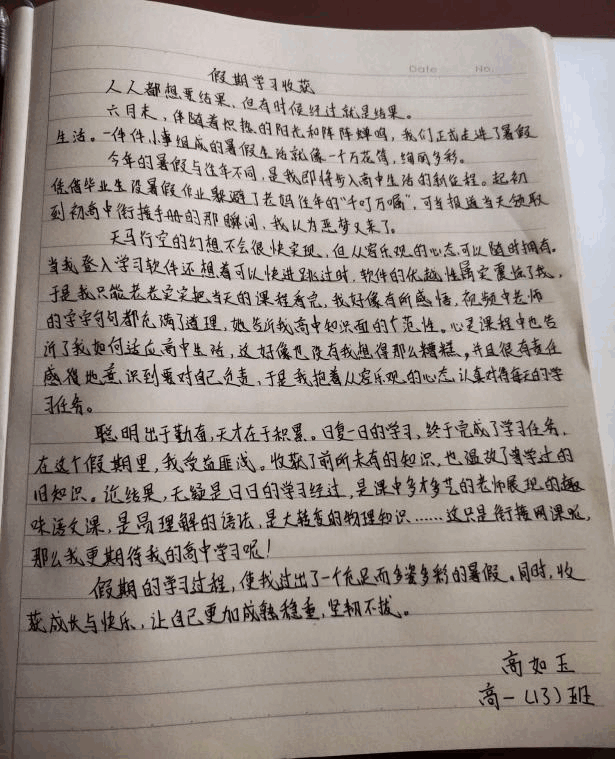 Date No.
假期学习收获
人人都想要结果，但有时候经过就是结果。
六月末，伴随着炽热的阳光和阵阵蝉鸣，我们正式走进了暑假
生活。一件件小事组成的暑假生活就像一个万花筒，绚丽多彩。
今年的暑假与往年不同，是我即将步入高中生活的新征程。起初
凭借毕业生没暑假作业躲避了老妈往年的“千叮万嘱”，可当报道当天领取
到初高中衔接手册的那瞬间，我认为恶梦又来了。
天马行空的幻想不会很快实现，但从容乐观的心态可以随时拥有。
当我登入学习软件还想着可以快进跳过时，软件的优越性属实震惊了我，
于是我只能老老实实把当天的课程看完，我好像有所感悟，视频中老师
的字字句句都充满了道理，她告诉我高中知识面的广范性。心灵课程中也告
诉了我如何适应高中生活，这好像也没有我想得那么糟糕。并且很有责任
感后地意识到要对自己负责，于是我抱着从容乐观的心态，认真对待每天的学
习任务。
聪明出于勤奋，天才在于积累。日复一日的学习，终于完成了学习任务，
在这个假期里，我受益匪浅。收获了前所未有的知识，也温故了曾学过的
旧知识。论结果，无疑是日日的学习经过，是课中多才多艺的老师展现的趣
味语文课，是易理解的语法，是大转变的物理知识……这只是衔接网课呢，
那么我更期待我的高中学习呢！
假期的学习过程，使我过出了一个充足而多姿多彩的暑假。同时，收
获成长与快乐，让自己更加成熟稳重，坚韧不拔。
高如玉
高一（13）班